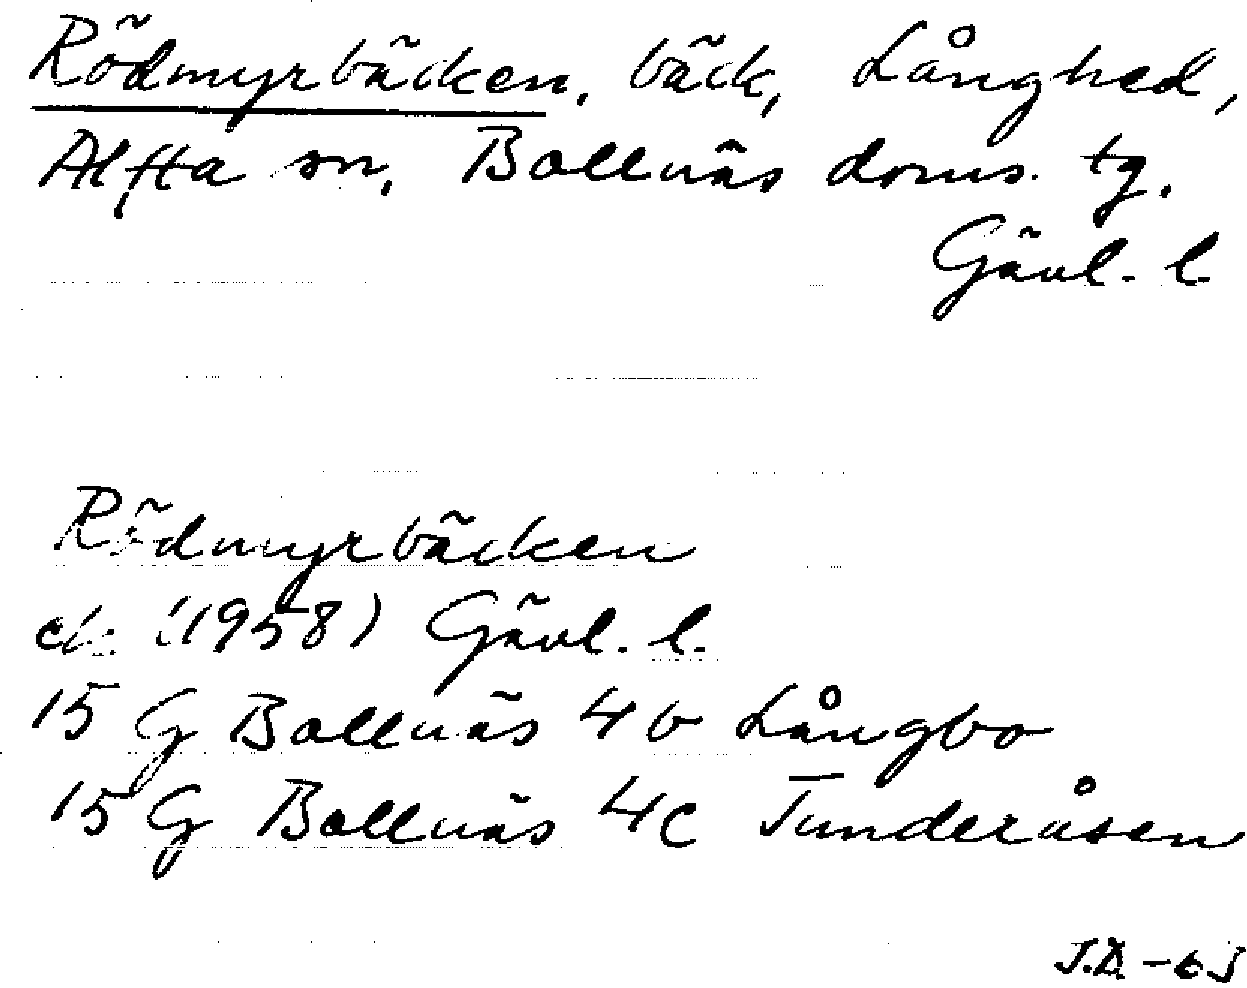 Rödmyrbäcken, bäck, Långhed,
Alfta sn, Bollnäs doms. tg.
Gävl. l.
Rödmyrbäcken
ek (1958) Gävl. l.
15 G Bollnäs 4b Långbo
15 G Bollnäs 4c Tunderåsen